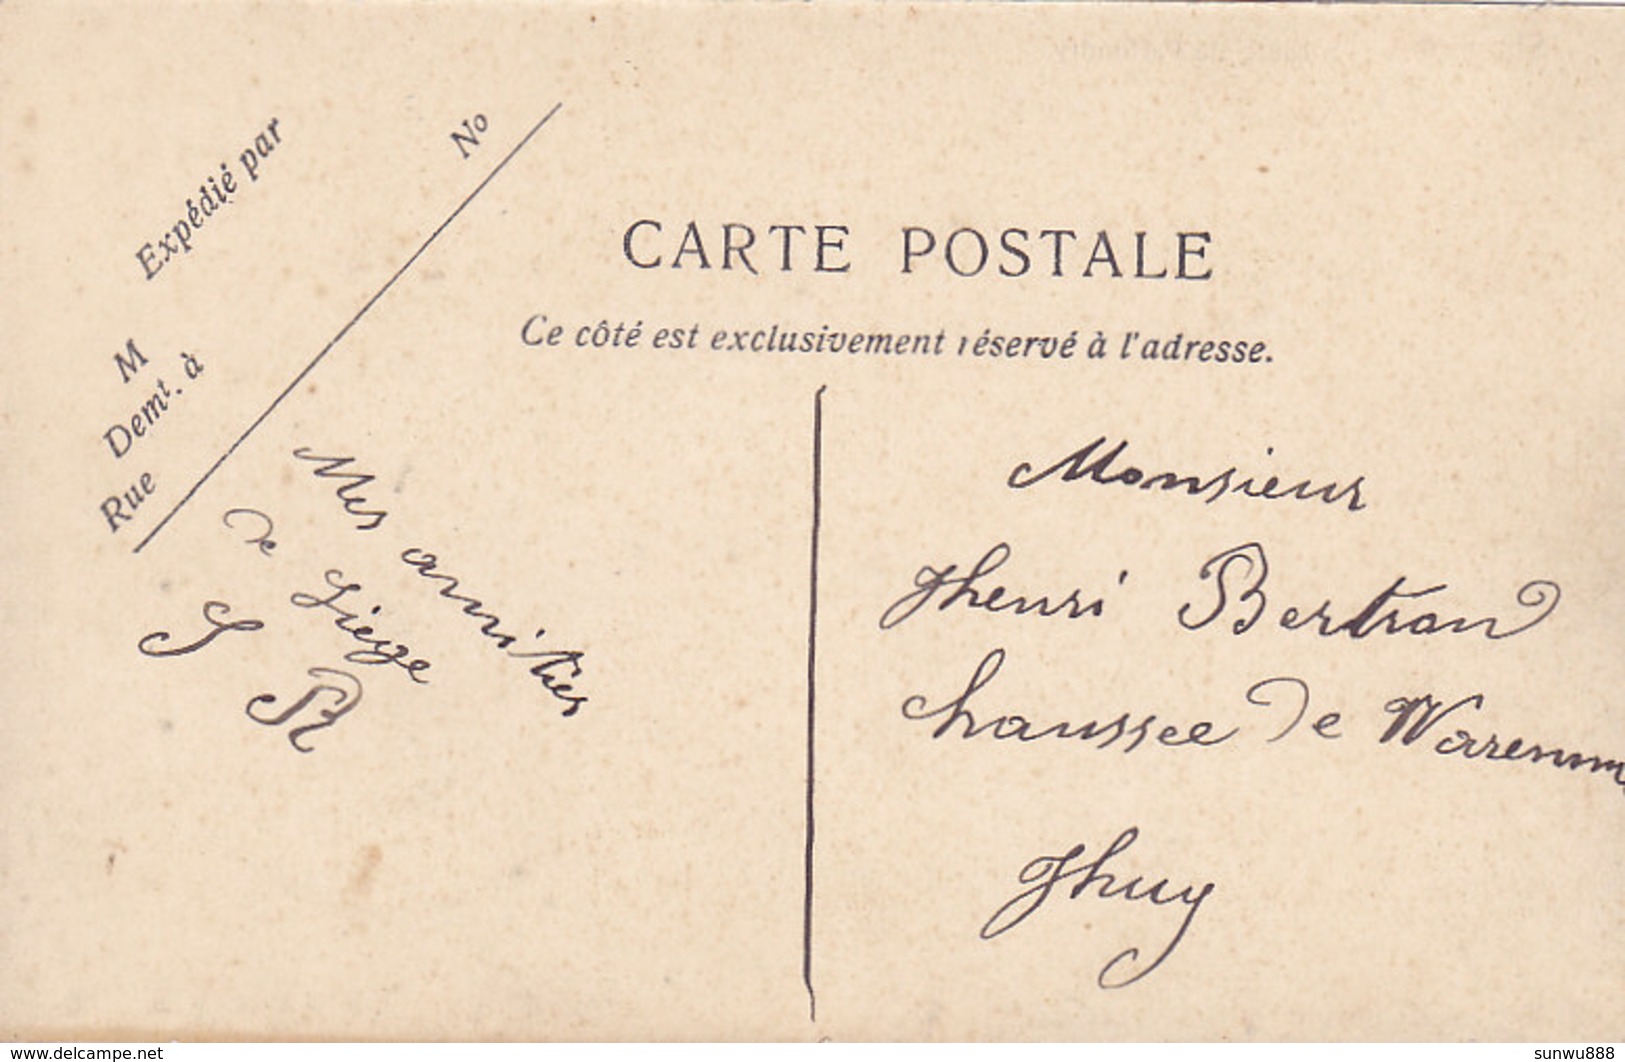 Expédié par
No
M
Demt. à
Rue
CARTE POSTALE
Ce côté est exclusivement réservé à l'adresse.
Mes amitiés
de Liège
S R
Monsieur
Henri Bertrand
chaussee de Waremme
Huy
www.delcampe.net
sunwu888